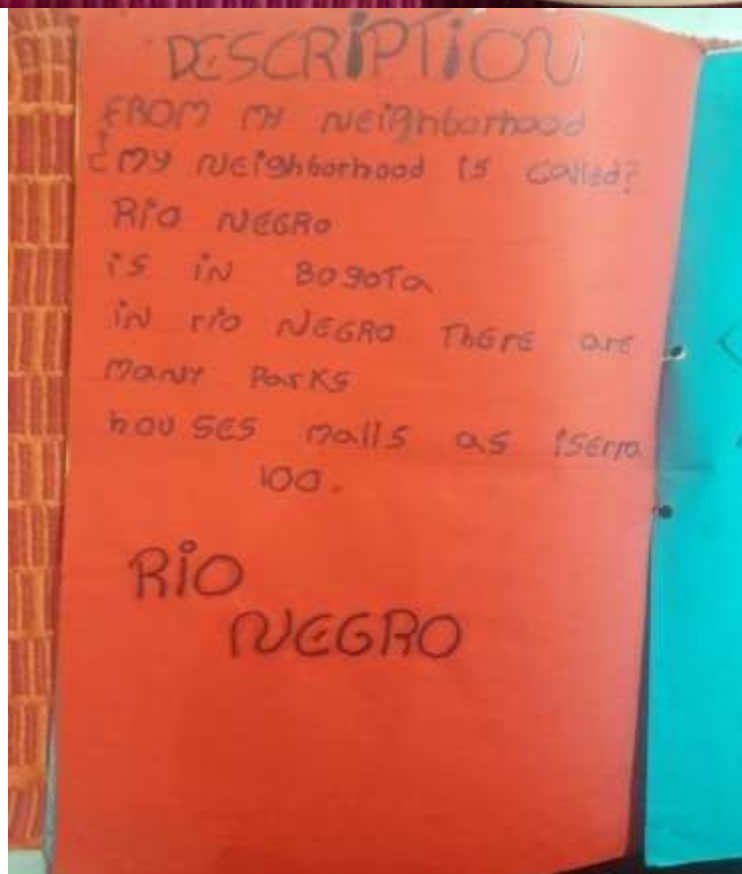 DESCRIPTION
FROM MY NEIGhborhood
¿MY NEIGhborhood is called?
RIO NEGRO
is iN BogoTa
iN rio NEGRO ThGre are
MaNY ParKS
houSES malls as iserra
100.
RiO
NEGRO